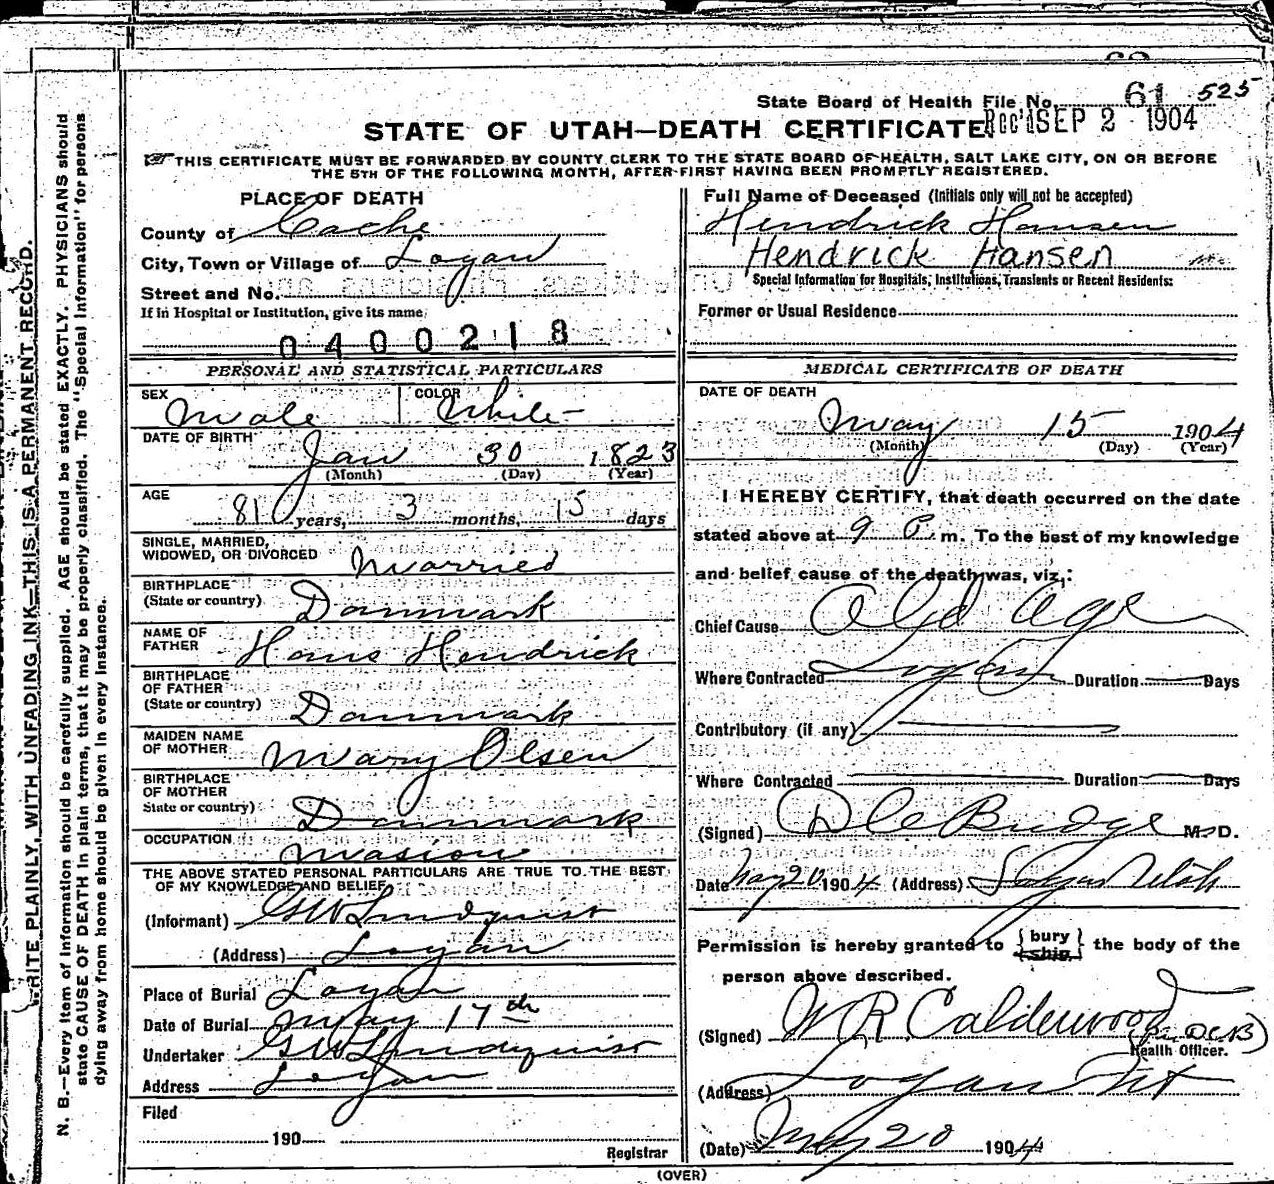 State Board of Health File No. 61 525
STATE OF UTAH—DEATH CERTIFICATE
Rec'd SEP 2 1904
THIS CERTIFICATE MUST BE FORWARDED BY COUNTY CLERK TO THE STATE BOARD OF HEALTH, SALT LAKE CITY, ON OR BEFORE
THE 5TH OF THE FOLLOWING MONTH, AFTER FIRST HAVING BEEN PROMPTLY REGISTERED.
WRITE PLAINLY, WITH UNFADING INK—THIS IS A PERMANENT RECORD.
N. B.—Every item of information should be carefully supplied. AGE should be stated EXACTLY. PHYSICIANS should
state CAUSE OF DEATH in plain terms, that it may be properly classified. The "Special Information" for persons
dying away from home should be given in every instance.
PLACE OF DEATH
County of Cache
City, Town or Village of Logan
Street and No.
If in Hospital or Institution, give its name
0400218
PERSONAL AND STATISTICAL PARTICULARS
SEX Male COLOR White
DATE OF BIRTH
Jan 30 1823
(Month) (Day) (Year)
AGE
81 years, 3 months, 15 days
SINGLE, MARRIED,
WIDOWED, OR DIVORCED Married
BIRTHPLACE
(State or country) Danmark
NAME OF
FATHER Hans Hendrick
BIRTHPLACE
OF FATHER
(State or country) Danmark
MAIDEN NAME
OF MOTHER Mary Olsen
BIRTHPLACE
OF MOTHER
State or country) Danmark
OCCUPATION Masion
THE ABOVE STATED PERSONAL PARTICULARS ARE TRUE TO THE BEST
OF MY KNOWLEDGE AND BELIEF
(Informant) GW Lindquist
(Address) Logan
Place of Burial Logan
Date of Burial May 17th
Undertaker GW Lindquist
Address Logan
Filed
190
Registrar
Full Name of Deceased (Initials only will not be accepted)
Hendrick Hansen
Hendrick Hansen
Special Information for Hospitals, Institutions, Transients or Recent Residents:
Former or Usual Residence
MEDICAL CERTIFICATE OF DEATH
DATE OF DEATH
May 15 1904
(Month) (Day) (Year)
I HEREBY CERTIFY, that death occurred on the date
stated above at 9 P. m. To the best of my knowledge
and belief cause of the death was, viz,:
Chief Cause Old Age
Where Contracted Logan Duration Days
Contributory (if any)
Where Contracted Duration Days
(Signed) D C Budge M. D.
Date May 20 1904 (Address) Logan Utah
Permission is hereby granted to {bury
ship} the body of the
person above described.
(Signed) W R Calderwood
(Per DCB)
Health Officer.
(Address) Logan Ut
(Date) May 20 1904
(OVER)